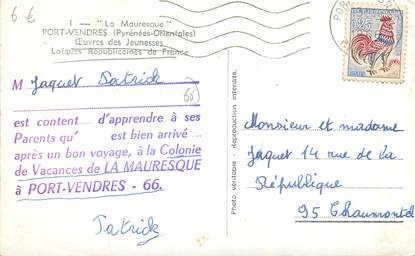 6 €
1 — "La Mauresque"
PORT-VENDRES (Pyrénées-Orientales)
Œuvres des Jeunesses
Laïques Républicaines de France
M Jaquet Patrick
(65)
est content.... d'apprendre à ses
Parents qu' est bien arrivé ....
après un bon voyage, à la Colonie
de Vacances de LA MAURESQUE
à PORT-VENDRES - 66.
Patrick
Photo véritable - Reproduction interdite.
0,25
Monsieur et madame
Jaquet 14 rue de la
République
95 Chaumontel